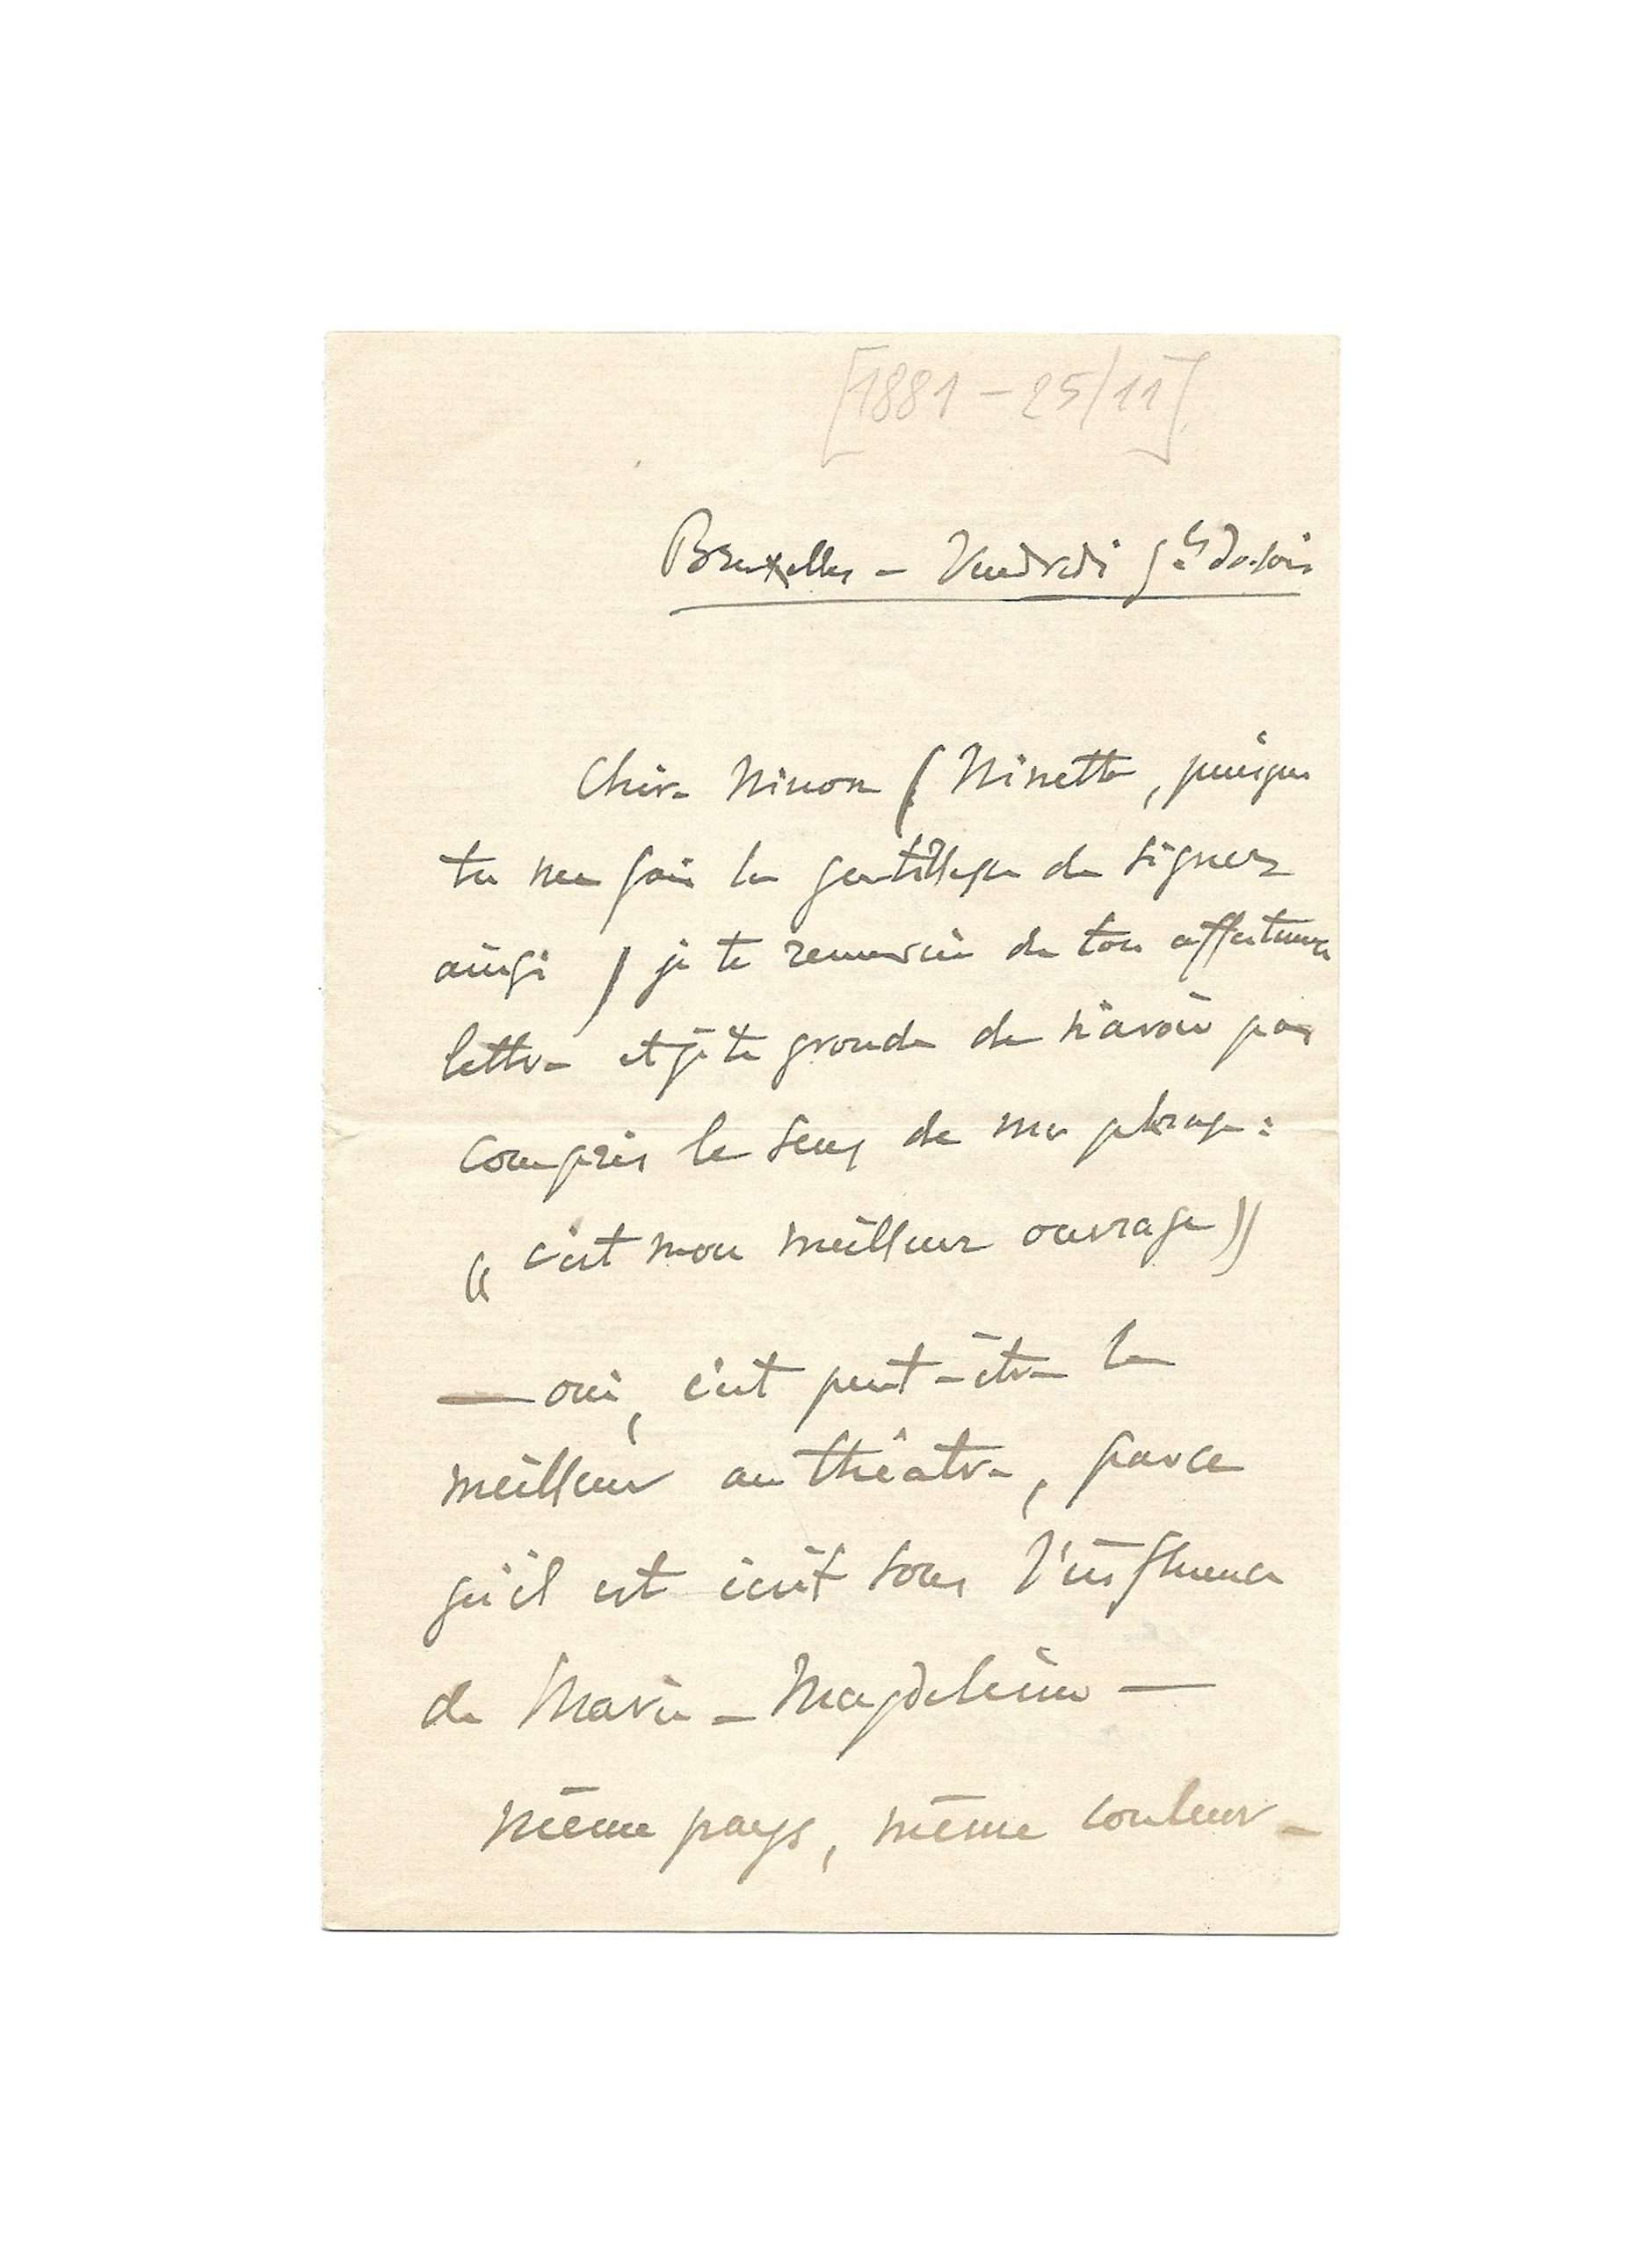 [1881 - 25/11]
Bruxelles - Vendredi 5 h. du soir
Chère Ninon (Ninette, puisque
tu me fais la gentillesse de signer
ainsi) je te remercie de ton affectueuse
lettre et je te gronde de n'avoir pas
compris le sens de ma phrase :
« c'est mon meilleur ouvrage »
— oui, c'est peut-être le
meilleur au théâtre, parce
qu'il est écrit sous l'influence
de Marie-Magdeleine —
même pays, même couleur -